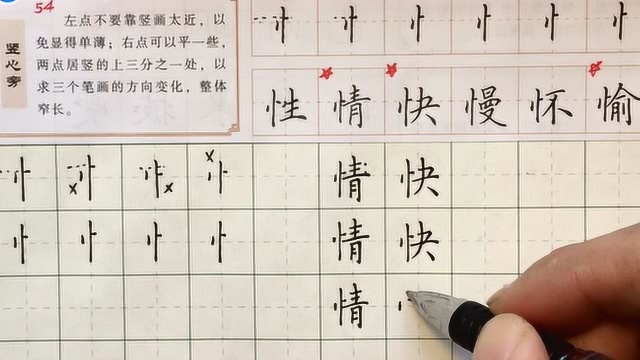 54
竖心旁
左点不要靠竖画太近，以
免显得单薄；右点可以平一些，
两点居竖的上三分之一处，以
求三个笔画的方向变化，整体
窄长。
忄 忄 忄 忄 忄 忄
性 情 快 慢 怀 愉
忄 忄 忄 忄 情 快
忄 忄 忄 忄 情 快
情